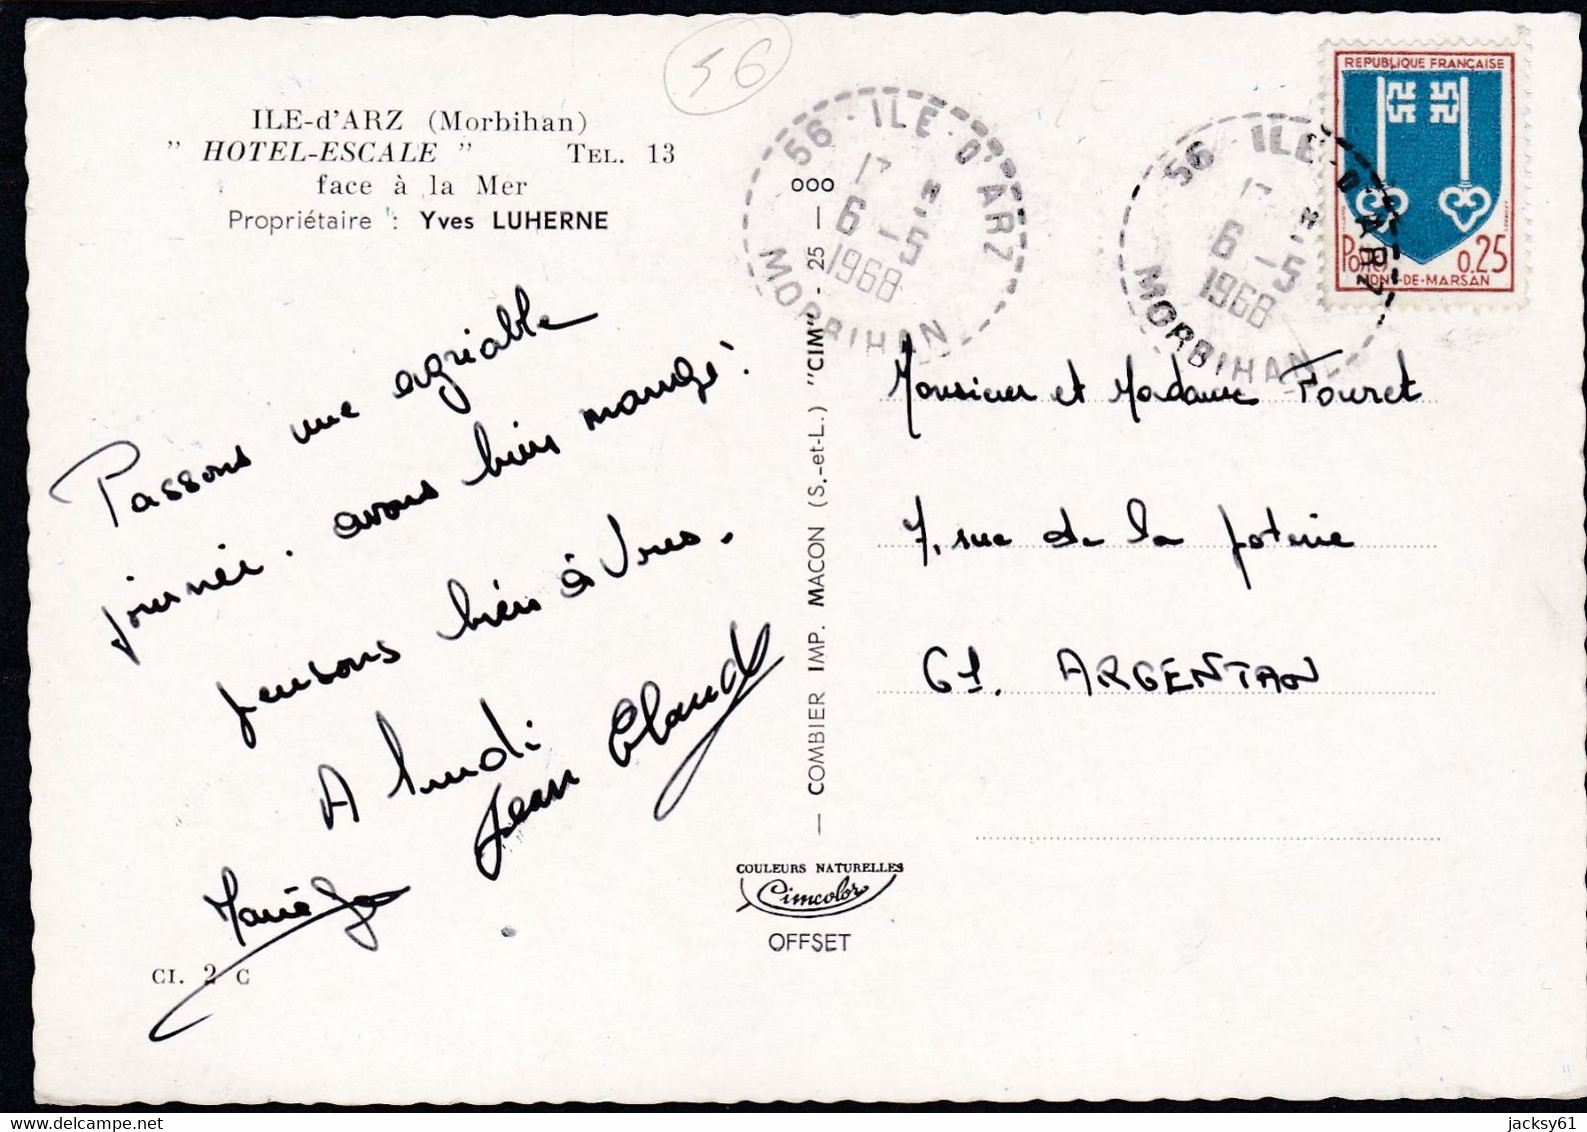 56
ILE-d'ARZ (Morbihan)
" HOTEL-ESCALE " TEL. 13
face à la Mer
Propriétaire : Yves LUHERNE
Passons une agréable
journée. avons bien mangé.
pensons bien à vous.
A lundi
Jean Claude
Marie Jo
CI. 2 C
— COMBIER IMP. MACON (S.-et-L.) "CIM" - 25 — 000
COULEURS NATURELLES
Cimcolor
OFFSET
56 - ILE - D'ARZ
6 - 5
1968
MORBIHAN
56 - ILE - D'ARZ
6 - 5
1968
MORBIHAN
REPUBLIQUE FRANÇAISE
Postes 0.25
MONT-DE-MARSAN
Monsieur et Madame Fouret
7, rue de la poterie
61. ARGENTAN
jacksy61